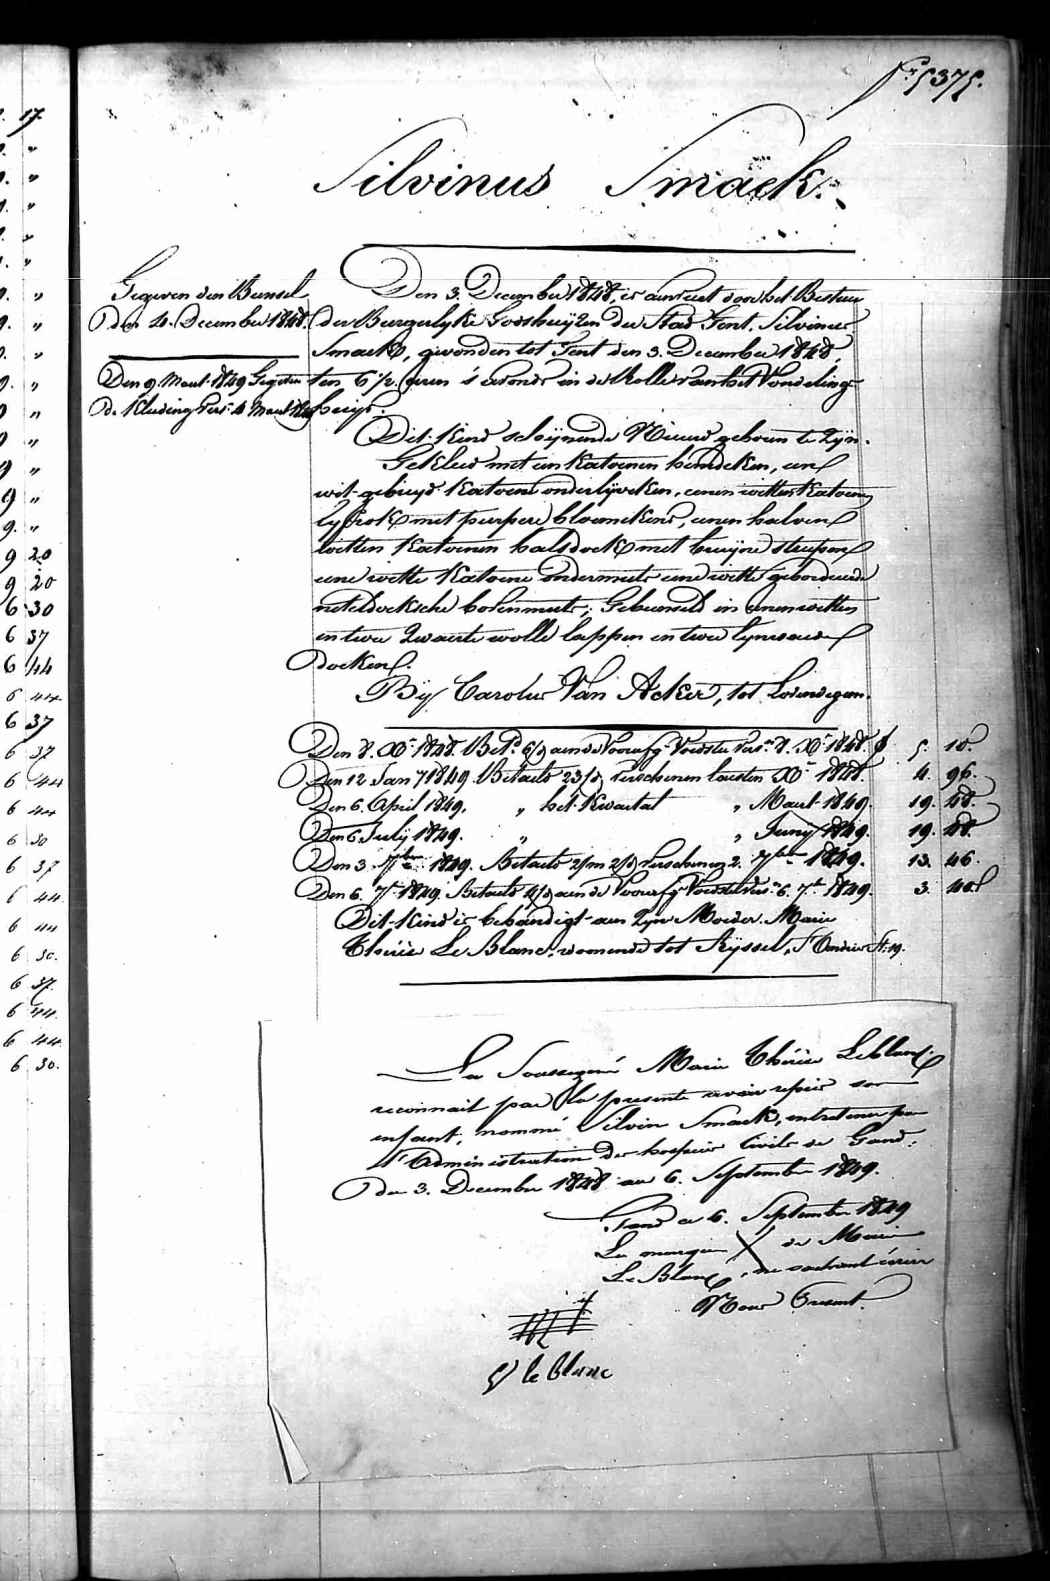 Nr 5375.
Silvinus Smäck.
Gegeven den Bunsel
den 4. December 1848.
Den 9 Maert 1849 Gegeven
de Kleeding vers. 4 Maert 1849
Den 3. December 1848, is aenveert door het Bestuer
der Burgerlyke Godshuyzen der Stad Gent, Silvinus
Smäck, gevonden tot Gent den 3. December 1848,
ten 6 1/2 uren s'avonds in de Rolle van het Vondeling
huys.
Dit kind schynende Nieuw geboren te Zyn.
Gekleed met een Katoenen hemdeken, een
wit-gebruyd Katoene onderlyveken, eenen witten Katoenen
lyfrok met purpere bloemekens, eenen halven
witten Katoenen halsdoek met bruyne streepen
eene witte Katoene ondermuts eene witte geborduerde
neteldoeksche bovenmuts; Gebunseld in eenen witten
en twee Zwarte wolle lappen en twee lynwaede
doeken.
By Carolus Van Acker, tot Lovendegem.
Den 8. Xr 1848. Betd. 6/d aen de Voorafg. Voedster vers. 8. Xr 1848. f 5. 10.
Den 12 Jan 7 1849 Betaeld 23/d verschenen laesten Xr 1848. 4. 96.
Den 6. April 1849, " het Kwartael " Maert 1849. 19. 48.
Den 6 July 1849. " " Juny 1849. 19. 48.
Den 3. 7ber 1849. Betaeld 2/m 2/d verschenen 2. 7ber 1849. 13. 46.
Den 6. 7r 1849. Betaeld 4/d aen de Voorafg. Voedster vers. 6. 7r 1849. 3. 40.
Dit Kind is behandigt aen Zyn Moeder Marie
Thérèse Le Blanc, woonende tot Ryssel, St. Andrie St: 19.
La Soussigné Marie Thérèse Leblanc
reconnait par la presente avoir repris son
enfant, nommé Silvin Smäck, entretenu par
l'Administration des hospices Civils de Gand:
du 3. Decembre 1848 au 6. Septembre 1849.
Gand ce 6. Septembre 1849
La marque X de Marie
Le Blanc, ne sachant écrire
Pour Present.
le blanc
17
20
20
6 30
6 37
6 44
6 44
6 37
6 37
6 44
6 44
6 30
6 37
6 44
6 44
6 30.
6 37.
6 44.
6 44.
6 30.